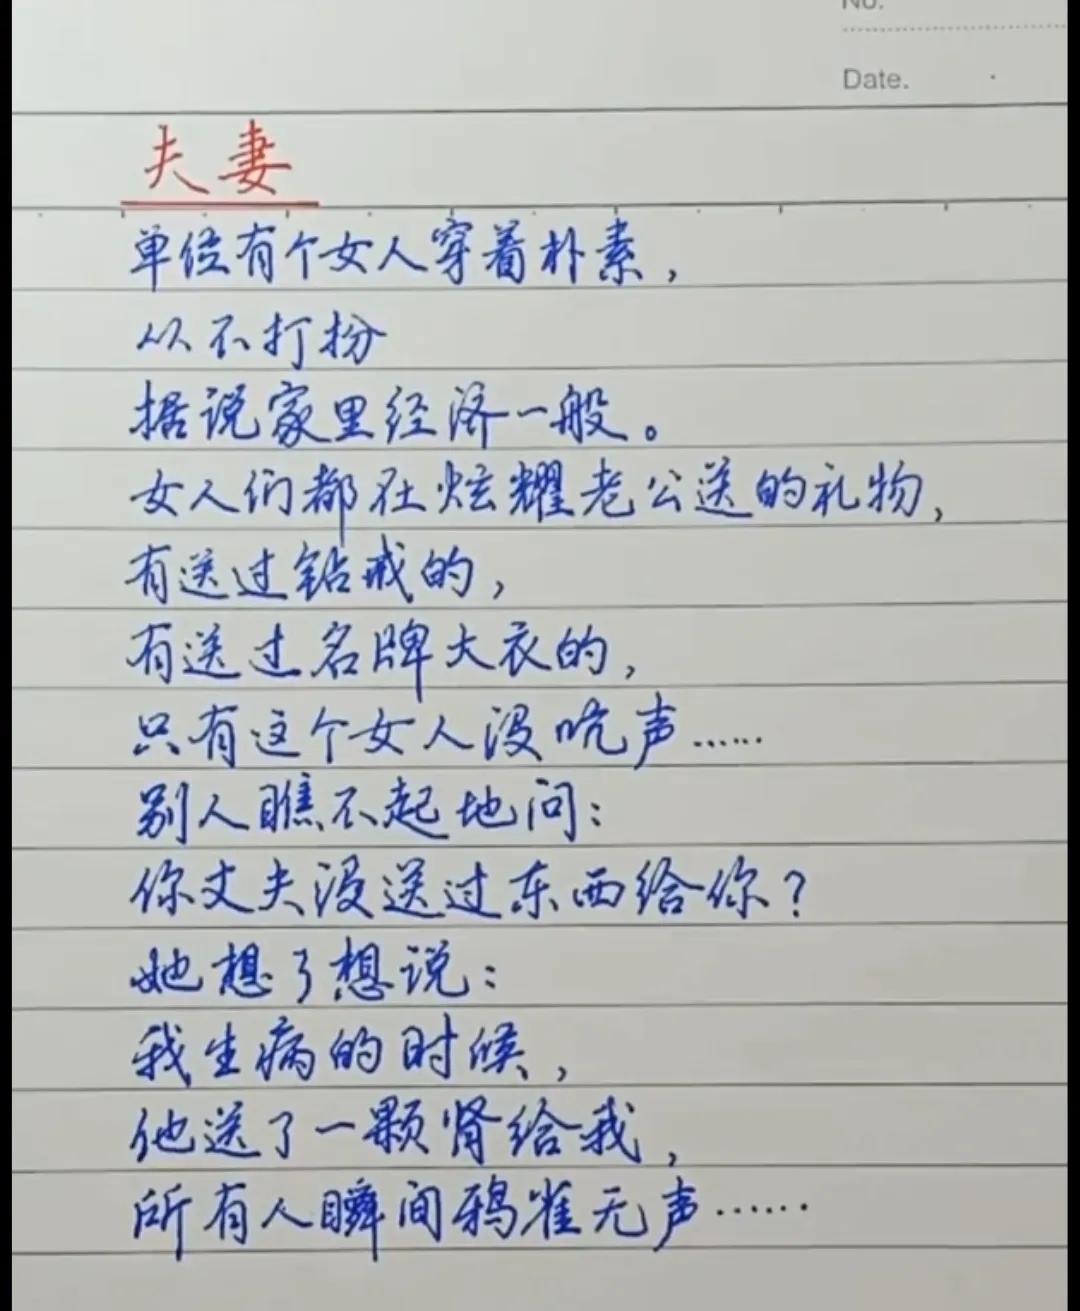 No.
Date.
夫妻
单位有个女人穿着朴素，
从不打扮
据说家里经济一般。
女人们都在炫耀老公送的礼物，
有送过钻戒的，
有送过名牌大衣的，
只有这个女人没吭声……
别人瞧不起地问：
你丈夫没送过东西给你？
她想了想说：
我生病的时候，
他送了一颗肾给我，
所有人瞬间鸦雀无声……